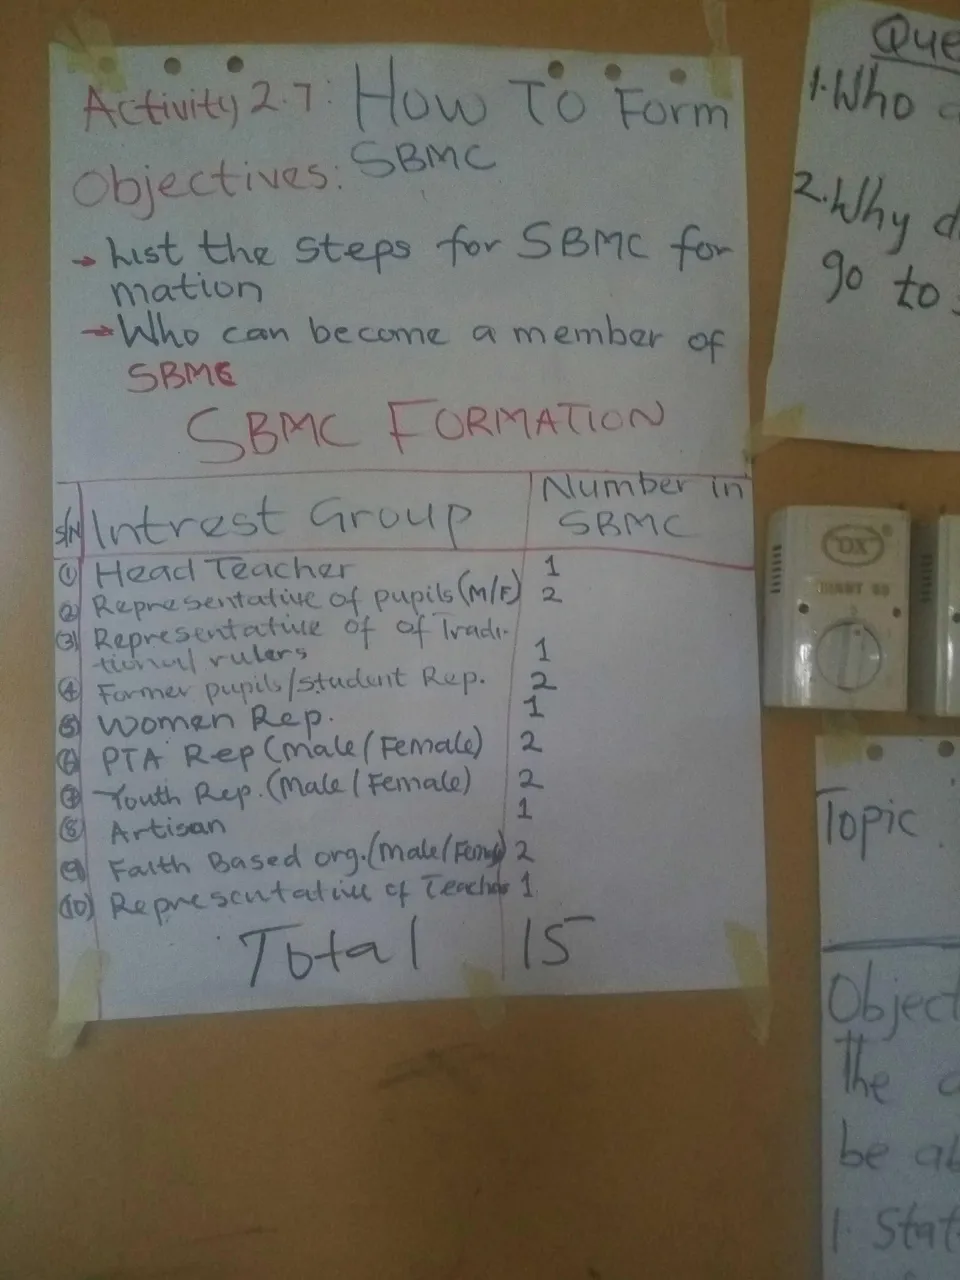 Activity 2.7: How To Form
SBMC
Objectives:
→ List the steps for SBMC for
mation
→ Who can become a member of
SBMC
SBMC FORMATION
S/N Intrest Group Number in
SBMC
① Head Teacher 1
② Representative of pupils (M/F) 2
③ Representative of of Tradi-
tional rulers 1
④ Former pupils/student Rep. 2
⑤ Women Rep. 1
⑥ PTA Rep (Male/Female) 2
⑦ Youth Rep. (Male/Female) 2
⑧ Artisan 1
⑨ Faith Based org. (Male/Female) 2
⑩ Representative of Teacher 1
Total 15
Que
1. Who
2. Why d
go to
OX
Topic
Object
The
be ab
1. Stat